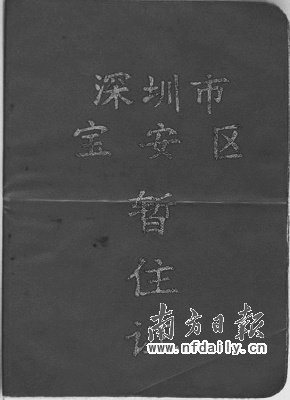 深圳市
宝安区
暂
住
证
南方日報
www.nfdaily.cn